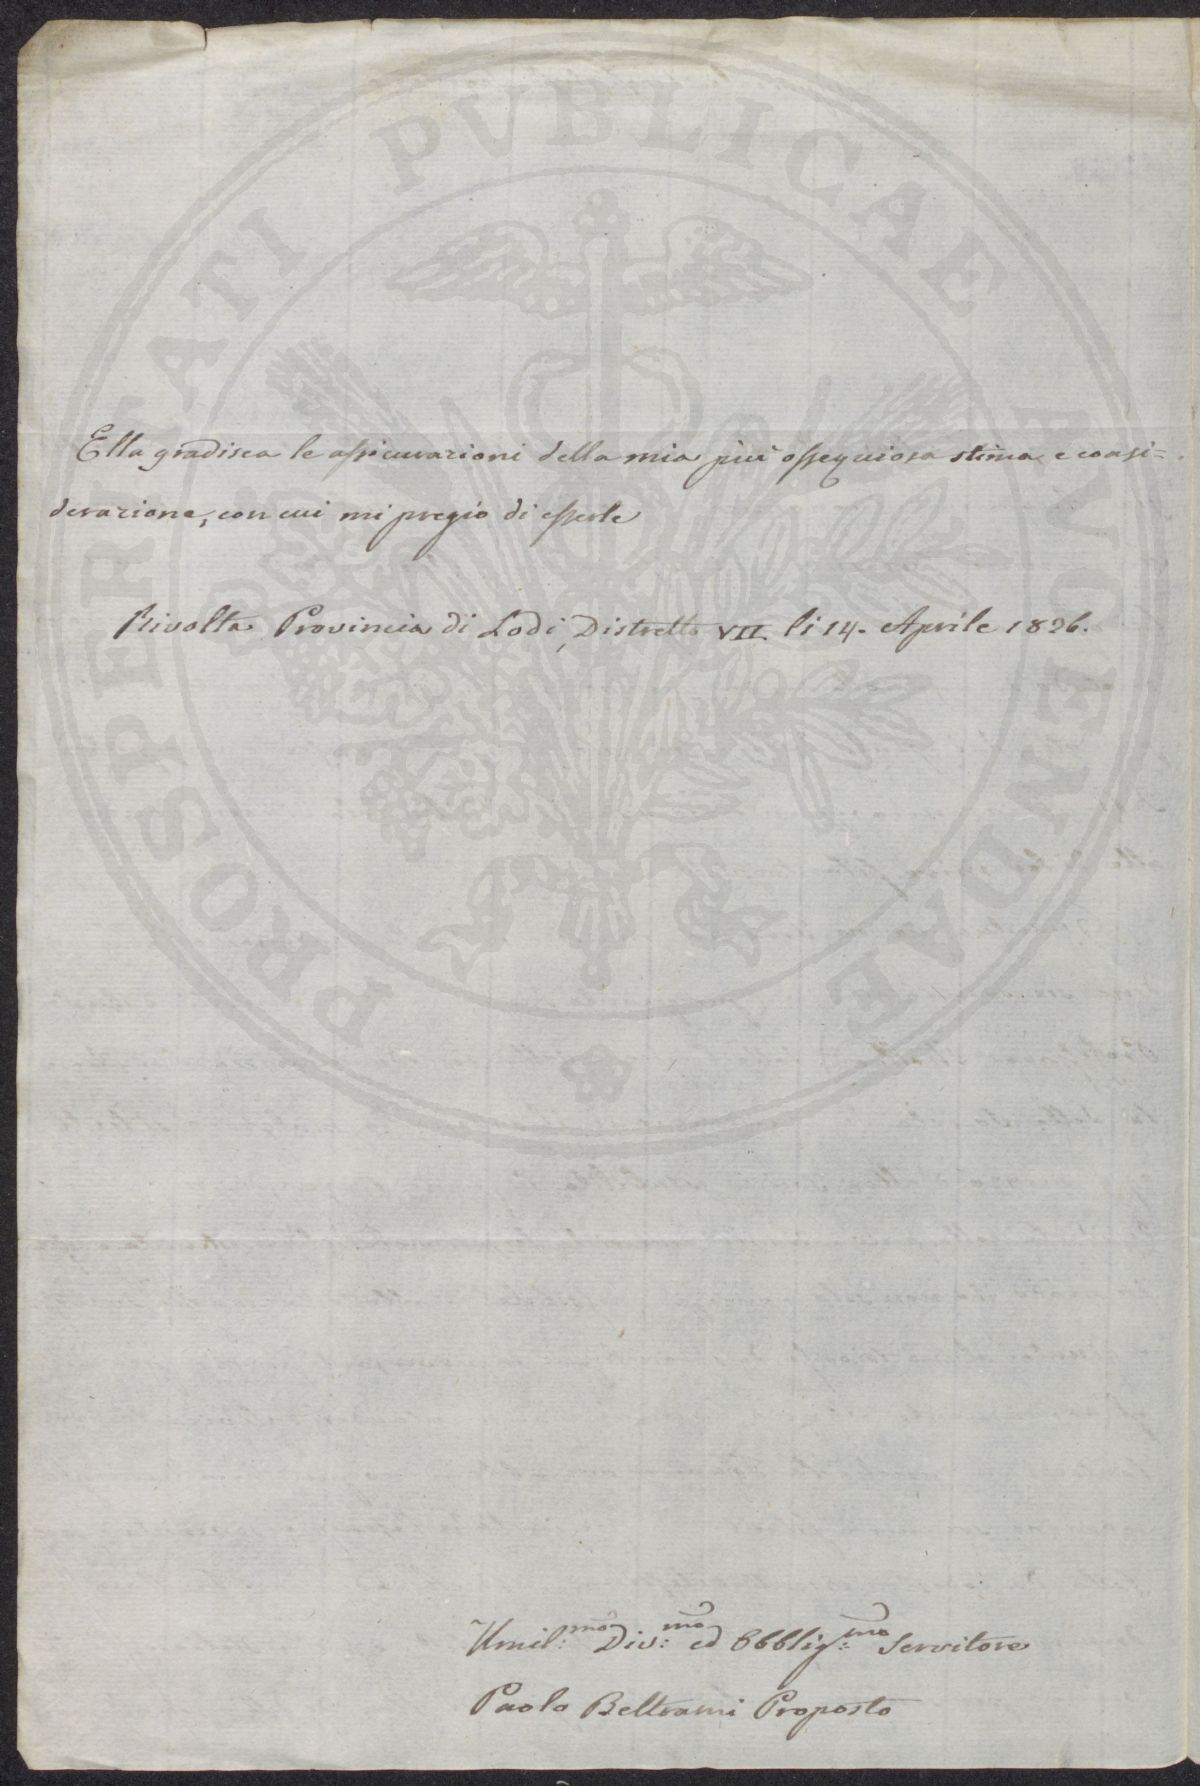 Ella gradisca le assicurazioni della mia più ossequiosa stima, e consi=
derazione, con cui mi pregio di esserle
Rivolta Provincia di Lodi, Distretto VII. li 14. Aprile 1826.
Umil:mo Div:mo ed Obblig:mo Servitore
Paolo Beltrami Proposto
PROSPERITATI PUBLICAE AUGENDAE